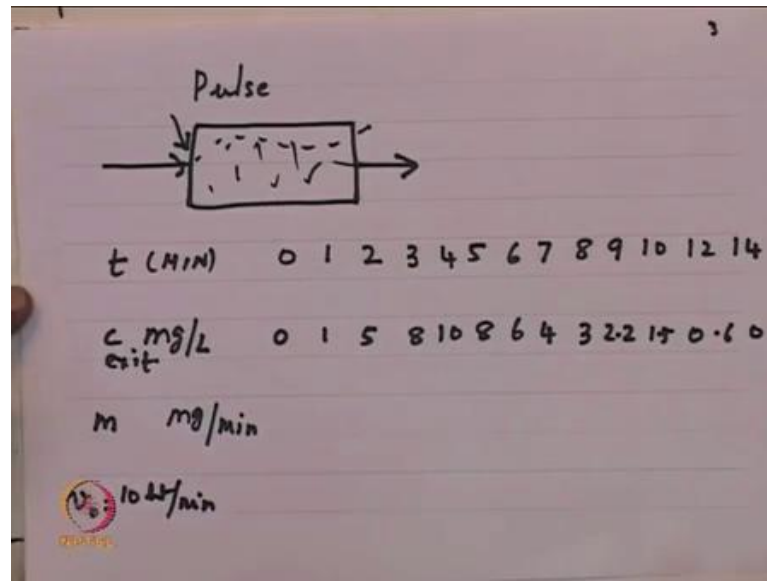 3
Pulse
t (MIN) 0 1 2 3 4 5 6 7 8 9 10 12 14
c mg/L 0 1 5 8 10 8 6 4 3 2.2 1.5 0.6 0
exit
m mg/min
v₀: 10 lit/min